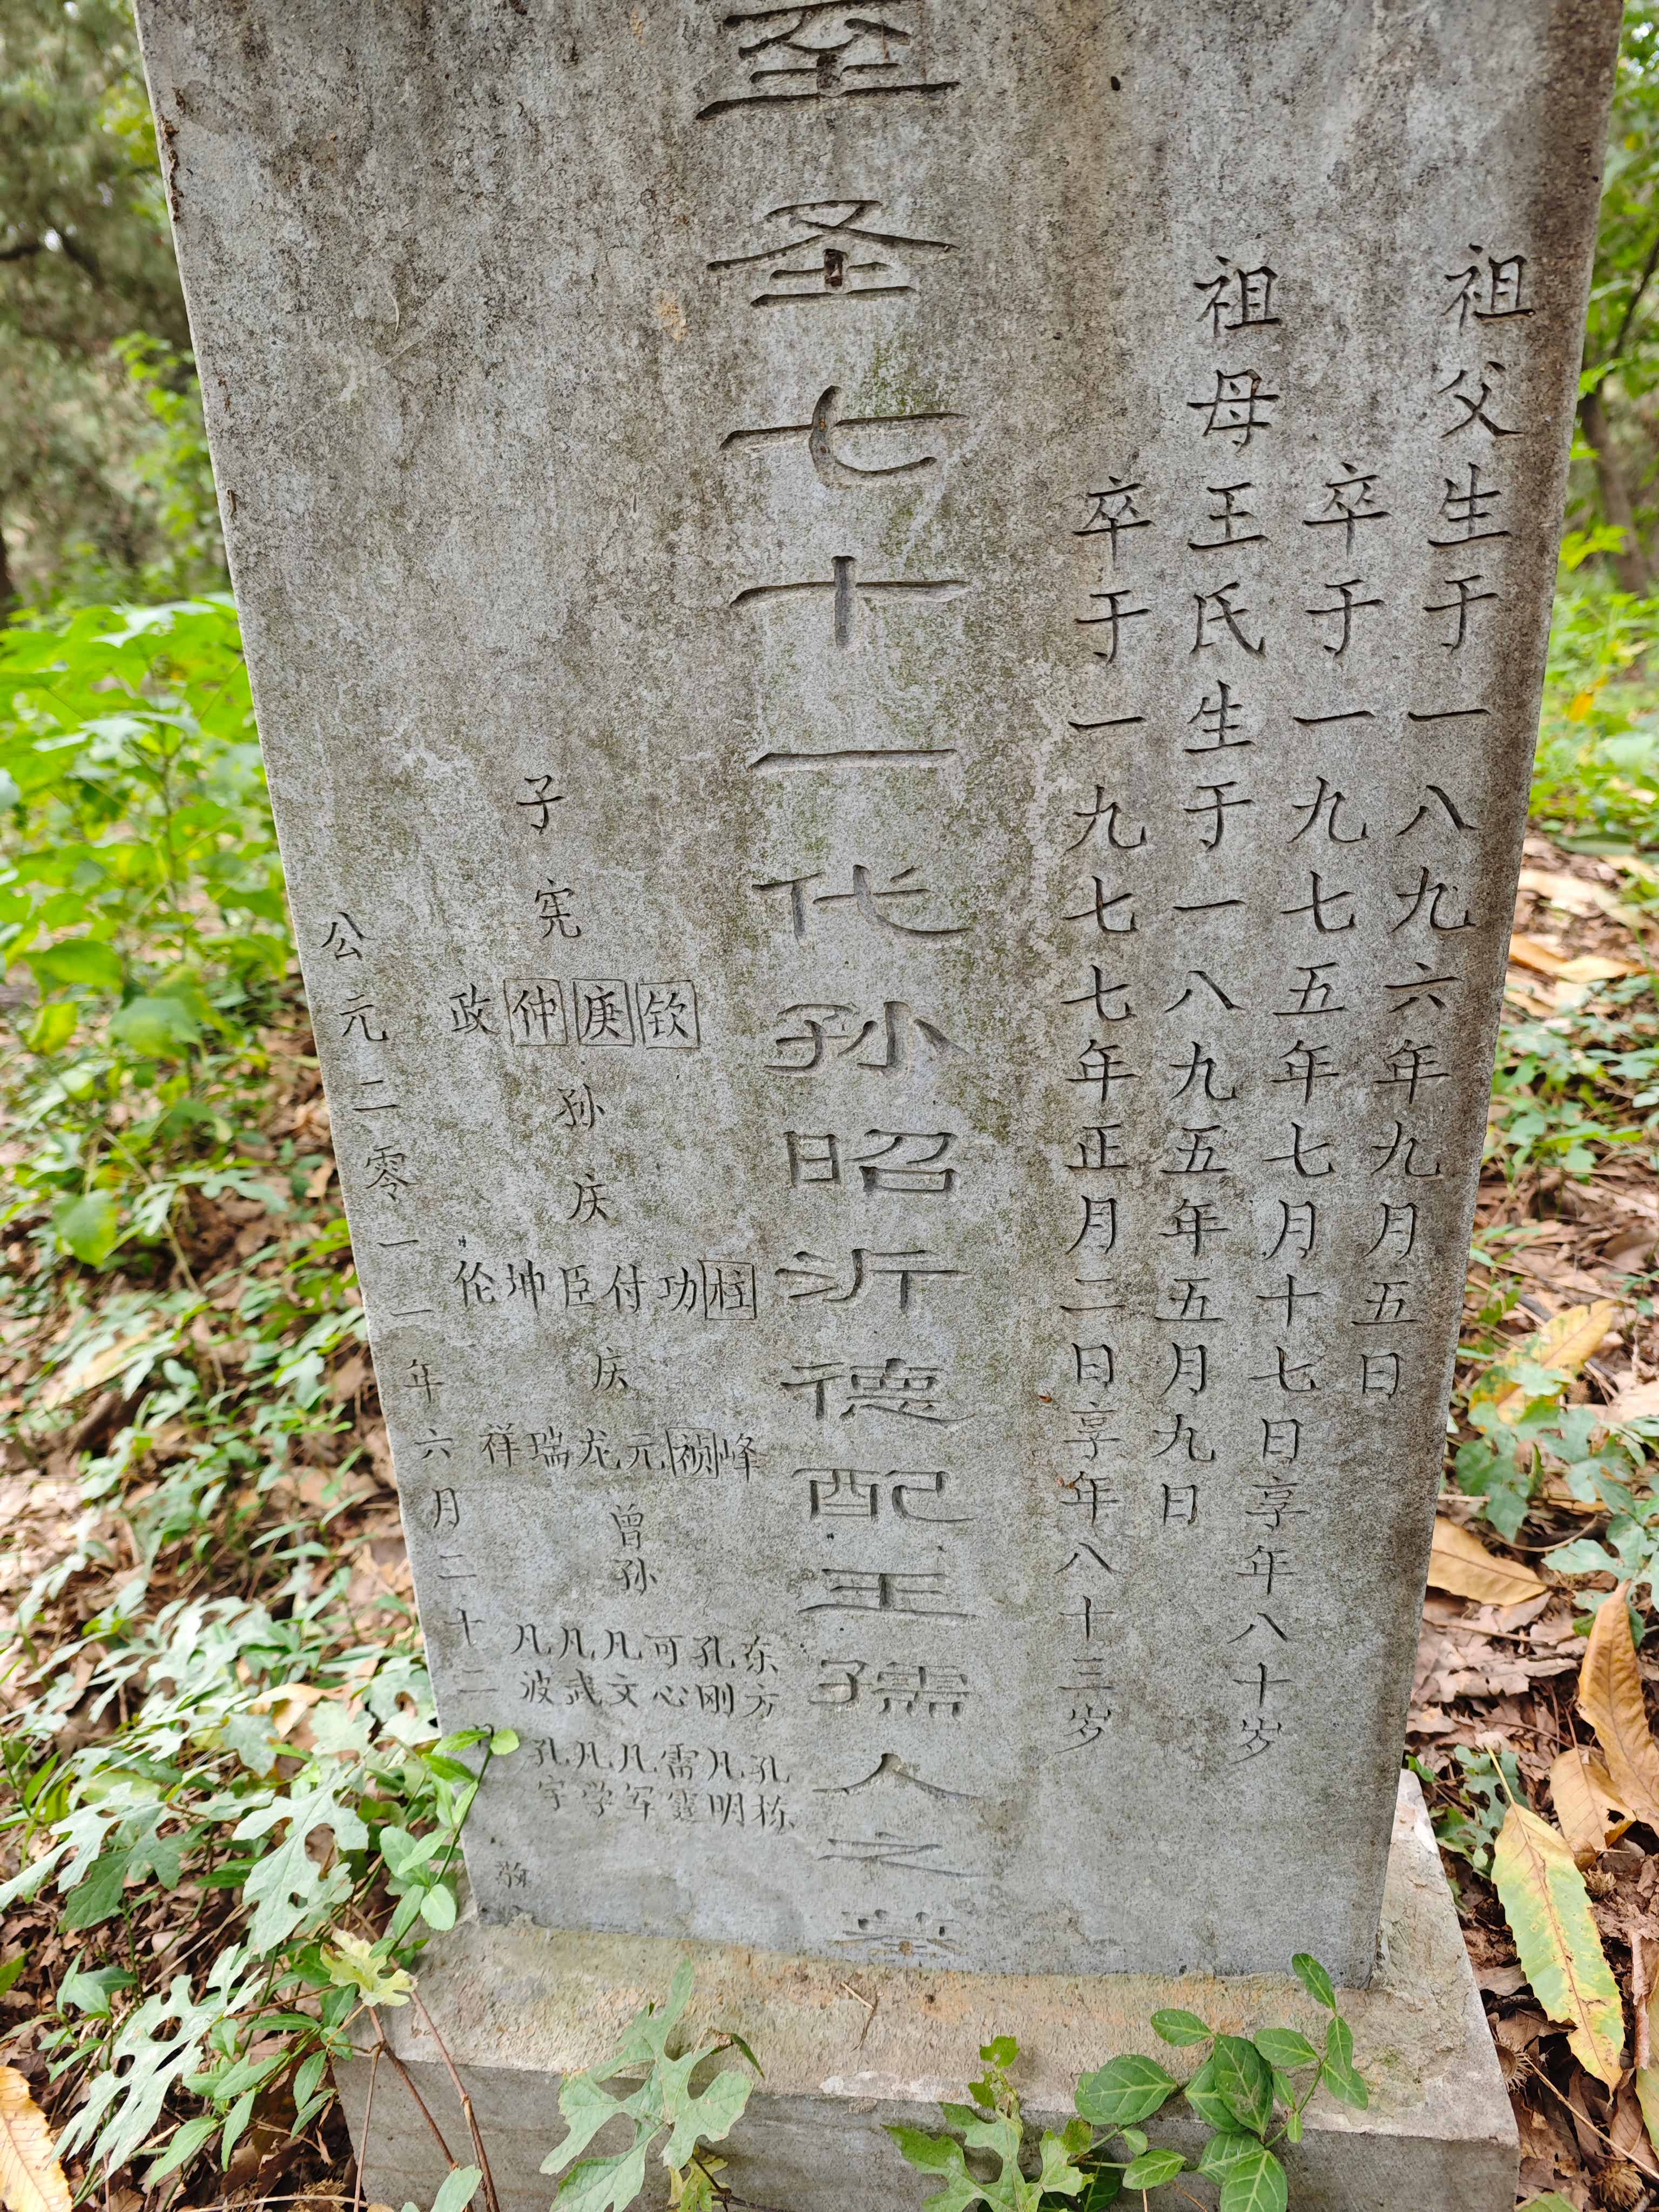 祖父生于一八九六年九月五日
卒于一九七五年七月十七日享年八十岁
祖母王氏生于一八九五年五月九日
卒于一九七七年正月二日享年八十三岁
至圣七十一代孙昭沂德配王孺人之墓
子
宪
钦 庚 仲 政
孙
庆
功 付 臣 坤 伦
庆
峰 祯 元 龙 瑞 祥
曾孙
东方 孔刚 可心 凡文 凡武 凡波
孔栋 凡明 雷霆 凡军 凡学 孔宇
敬
公元二零一一年六月二十二日